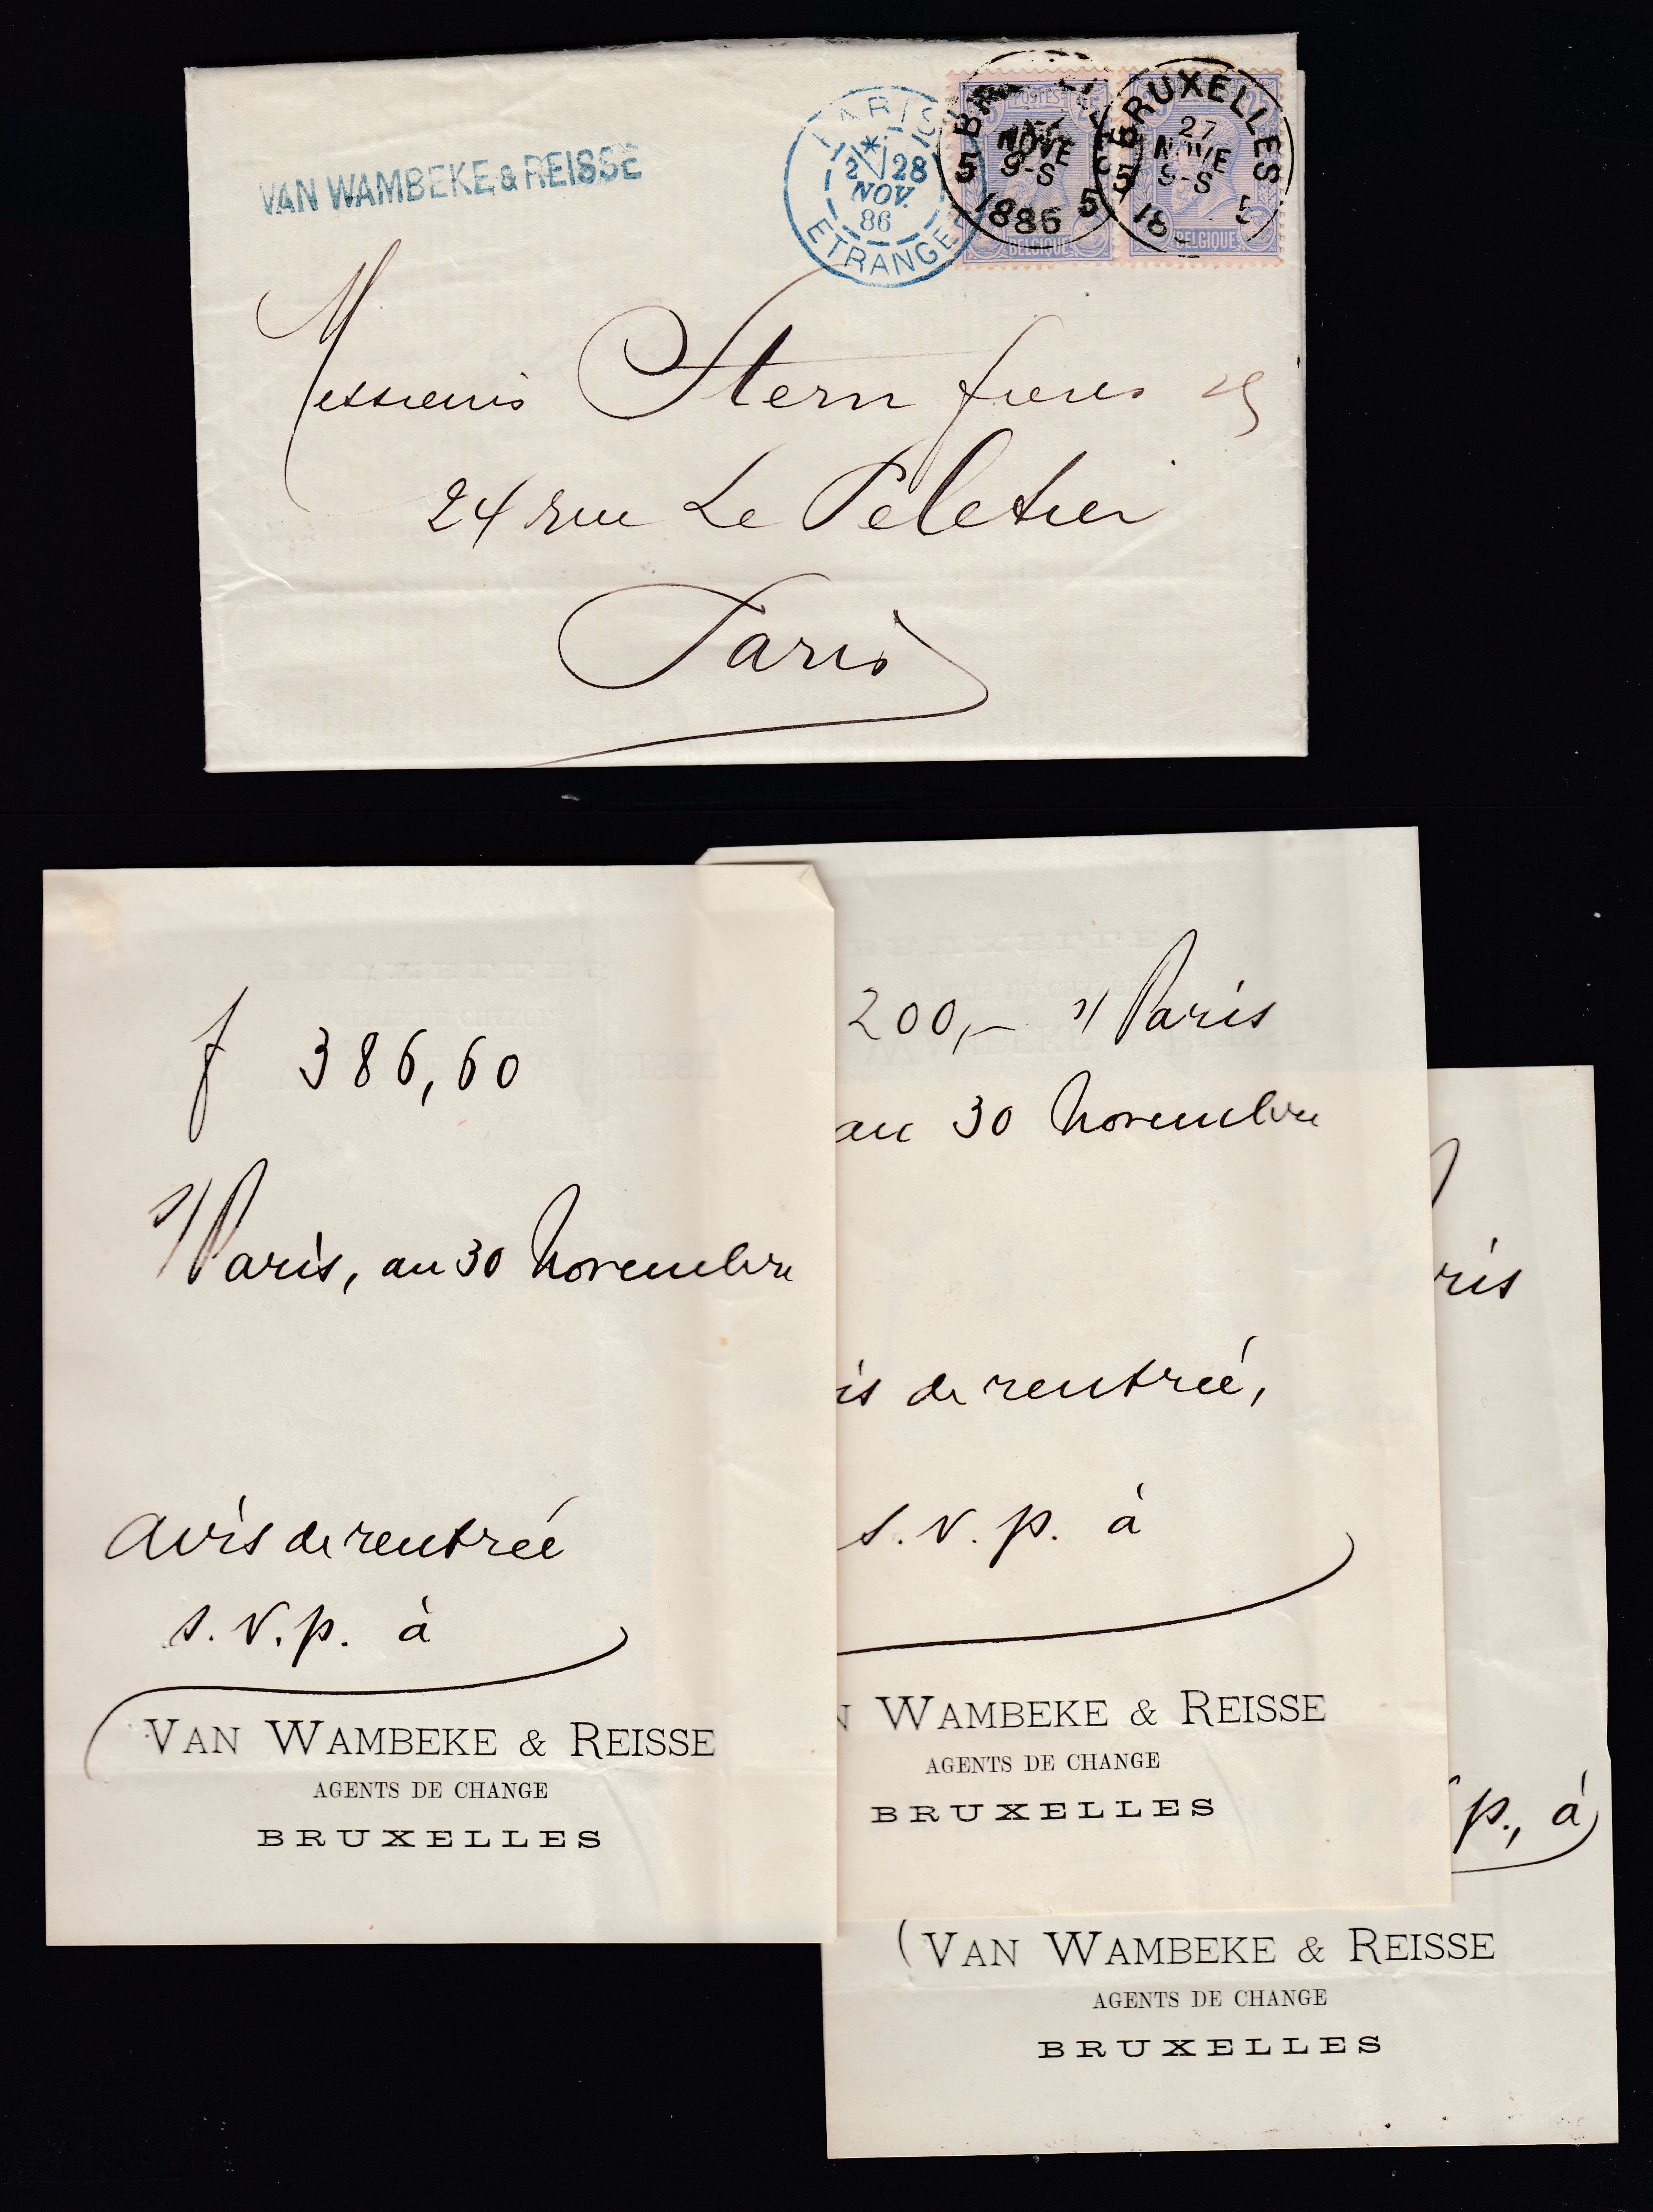 VAN WAMBEKE & REISSE
PARIS
2 28
NOV.
86
ETRANGER
POSTES 25
BELGIQUE
NOVE
9-S
5 1886 5
BRUXELLES
27
NOVE
9-S
5 18 5
25
BELGIQUE
Messieurs Stern freres
24 rue Le Peletier
Paris
f 386,60
s/ Paris, au 30 Novembre
Avis de rentrée
s.v.p. à
VAN WAMBEKE & REISSE
AGENTS DE CHANGE
BRUXELLES
200,- s/ Paris
au 30 Novembre
is de rentrée,
s.v.p. à
N WAMBEKE & REISSE
AGENTS DE CHANGE
BRUXELLES
ris
p., à
VAN WAMBEKE & REISSE
AGENTS DE CHANGE
BRUXELLES